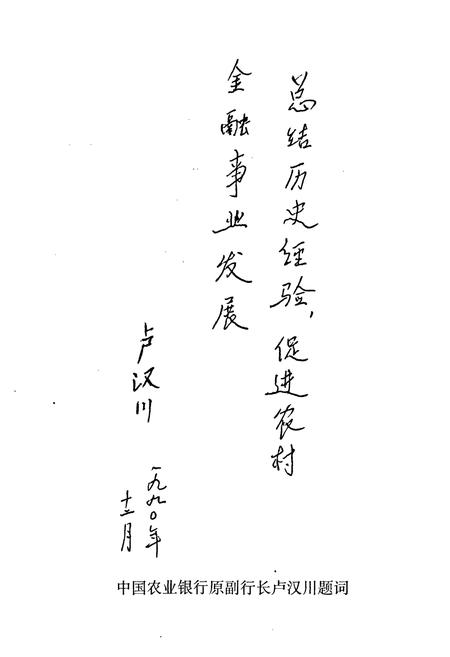 总结历史经验，促进农村
金融事业发展
卢汉川
一九九〇年
十二月
中国农业银行原副行长卢汉川题词